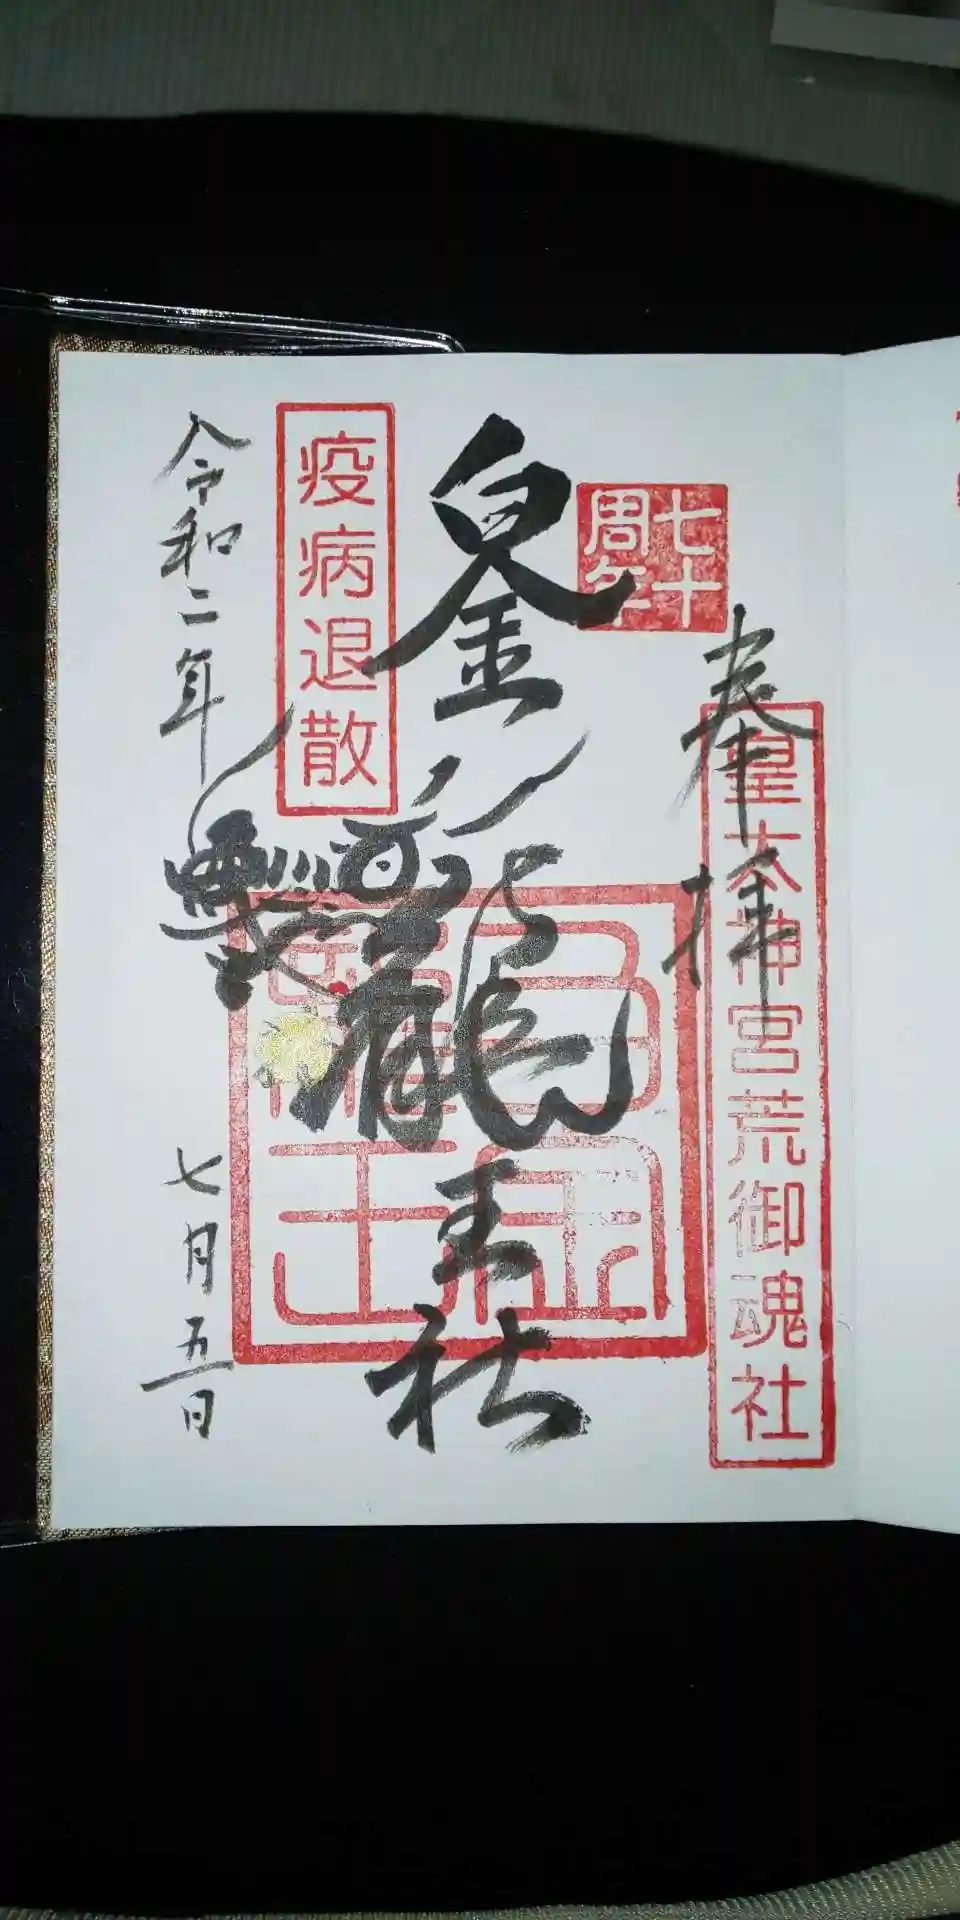 奉拝
皇大神宮荒御魂社
七十
周年
白金龍王社
白金
龍王
疫病退散
令和二年七月五日